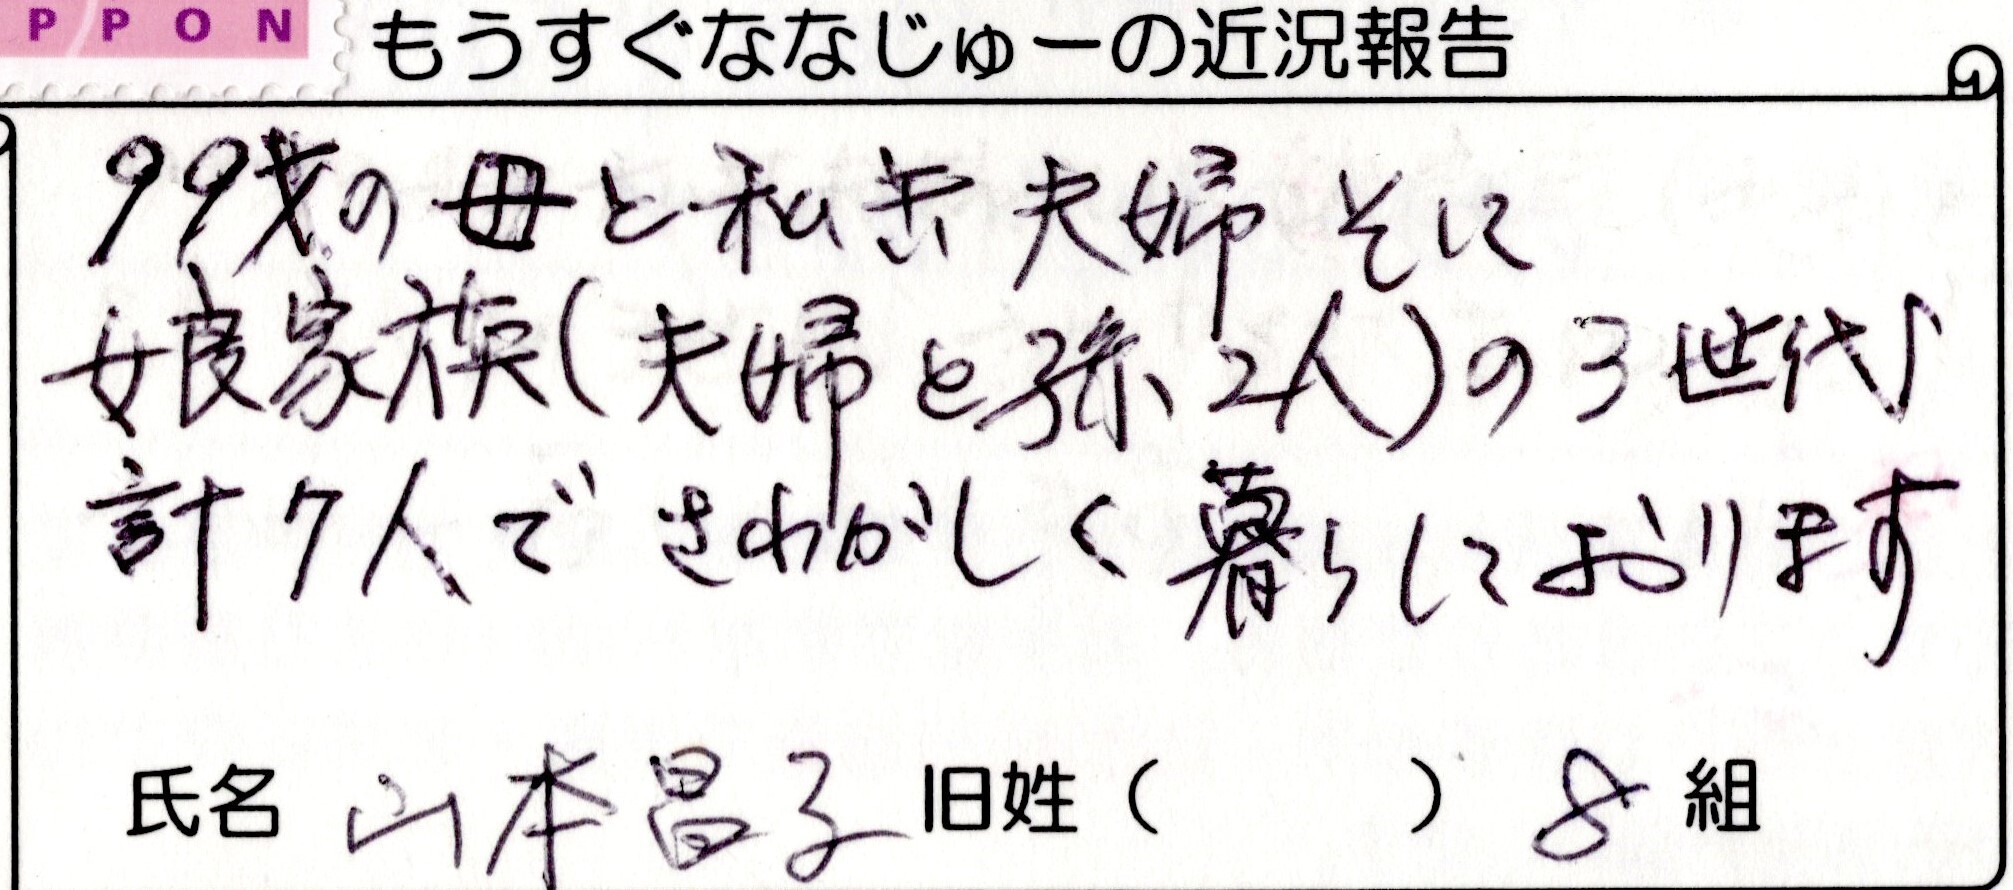 PPON
もうすぐななじゅーの近況報告
99才の母と私共夫婦そに
娘家族(夫婦と孫2人)の3世代
計7人でさわがしく暮らしております
氏名 山本昌子 旧姓( ) 8組